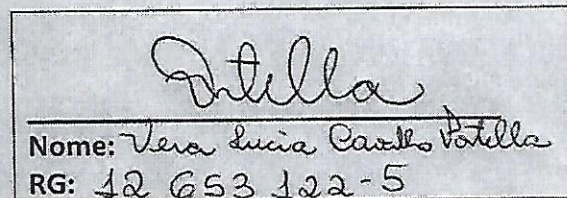 Portilla
Nome: Vera Lucia Carvalho Portilla
RG: 12 653 122-5